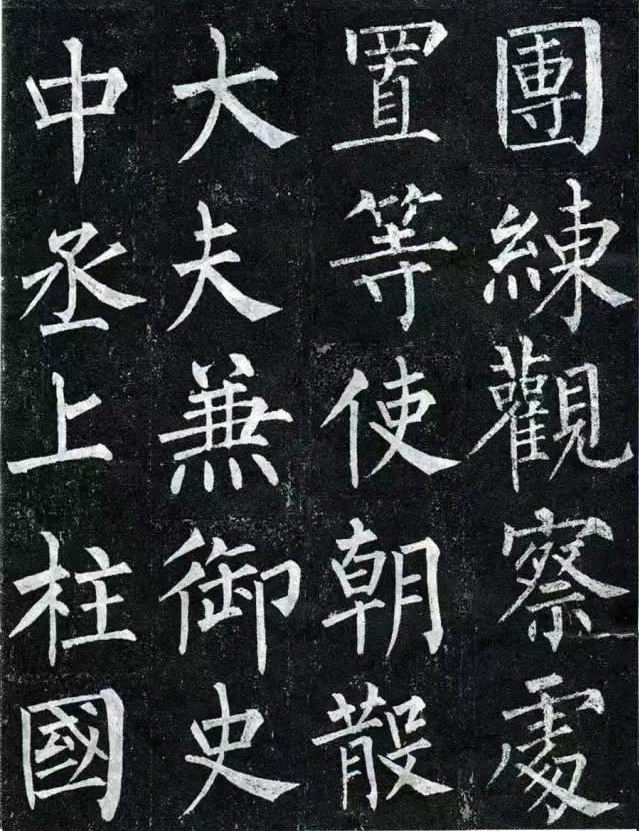 團練觀察處
置等使朝散
大夫兼御史
中丞上柱國